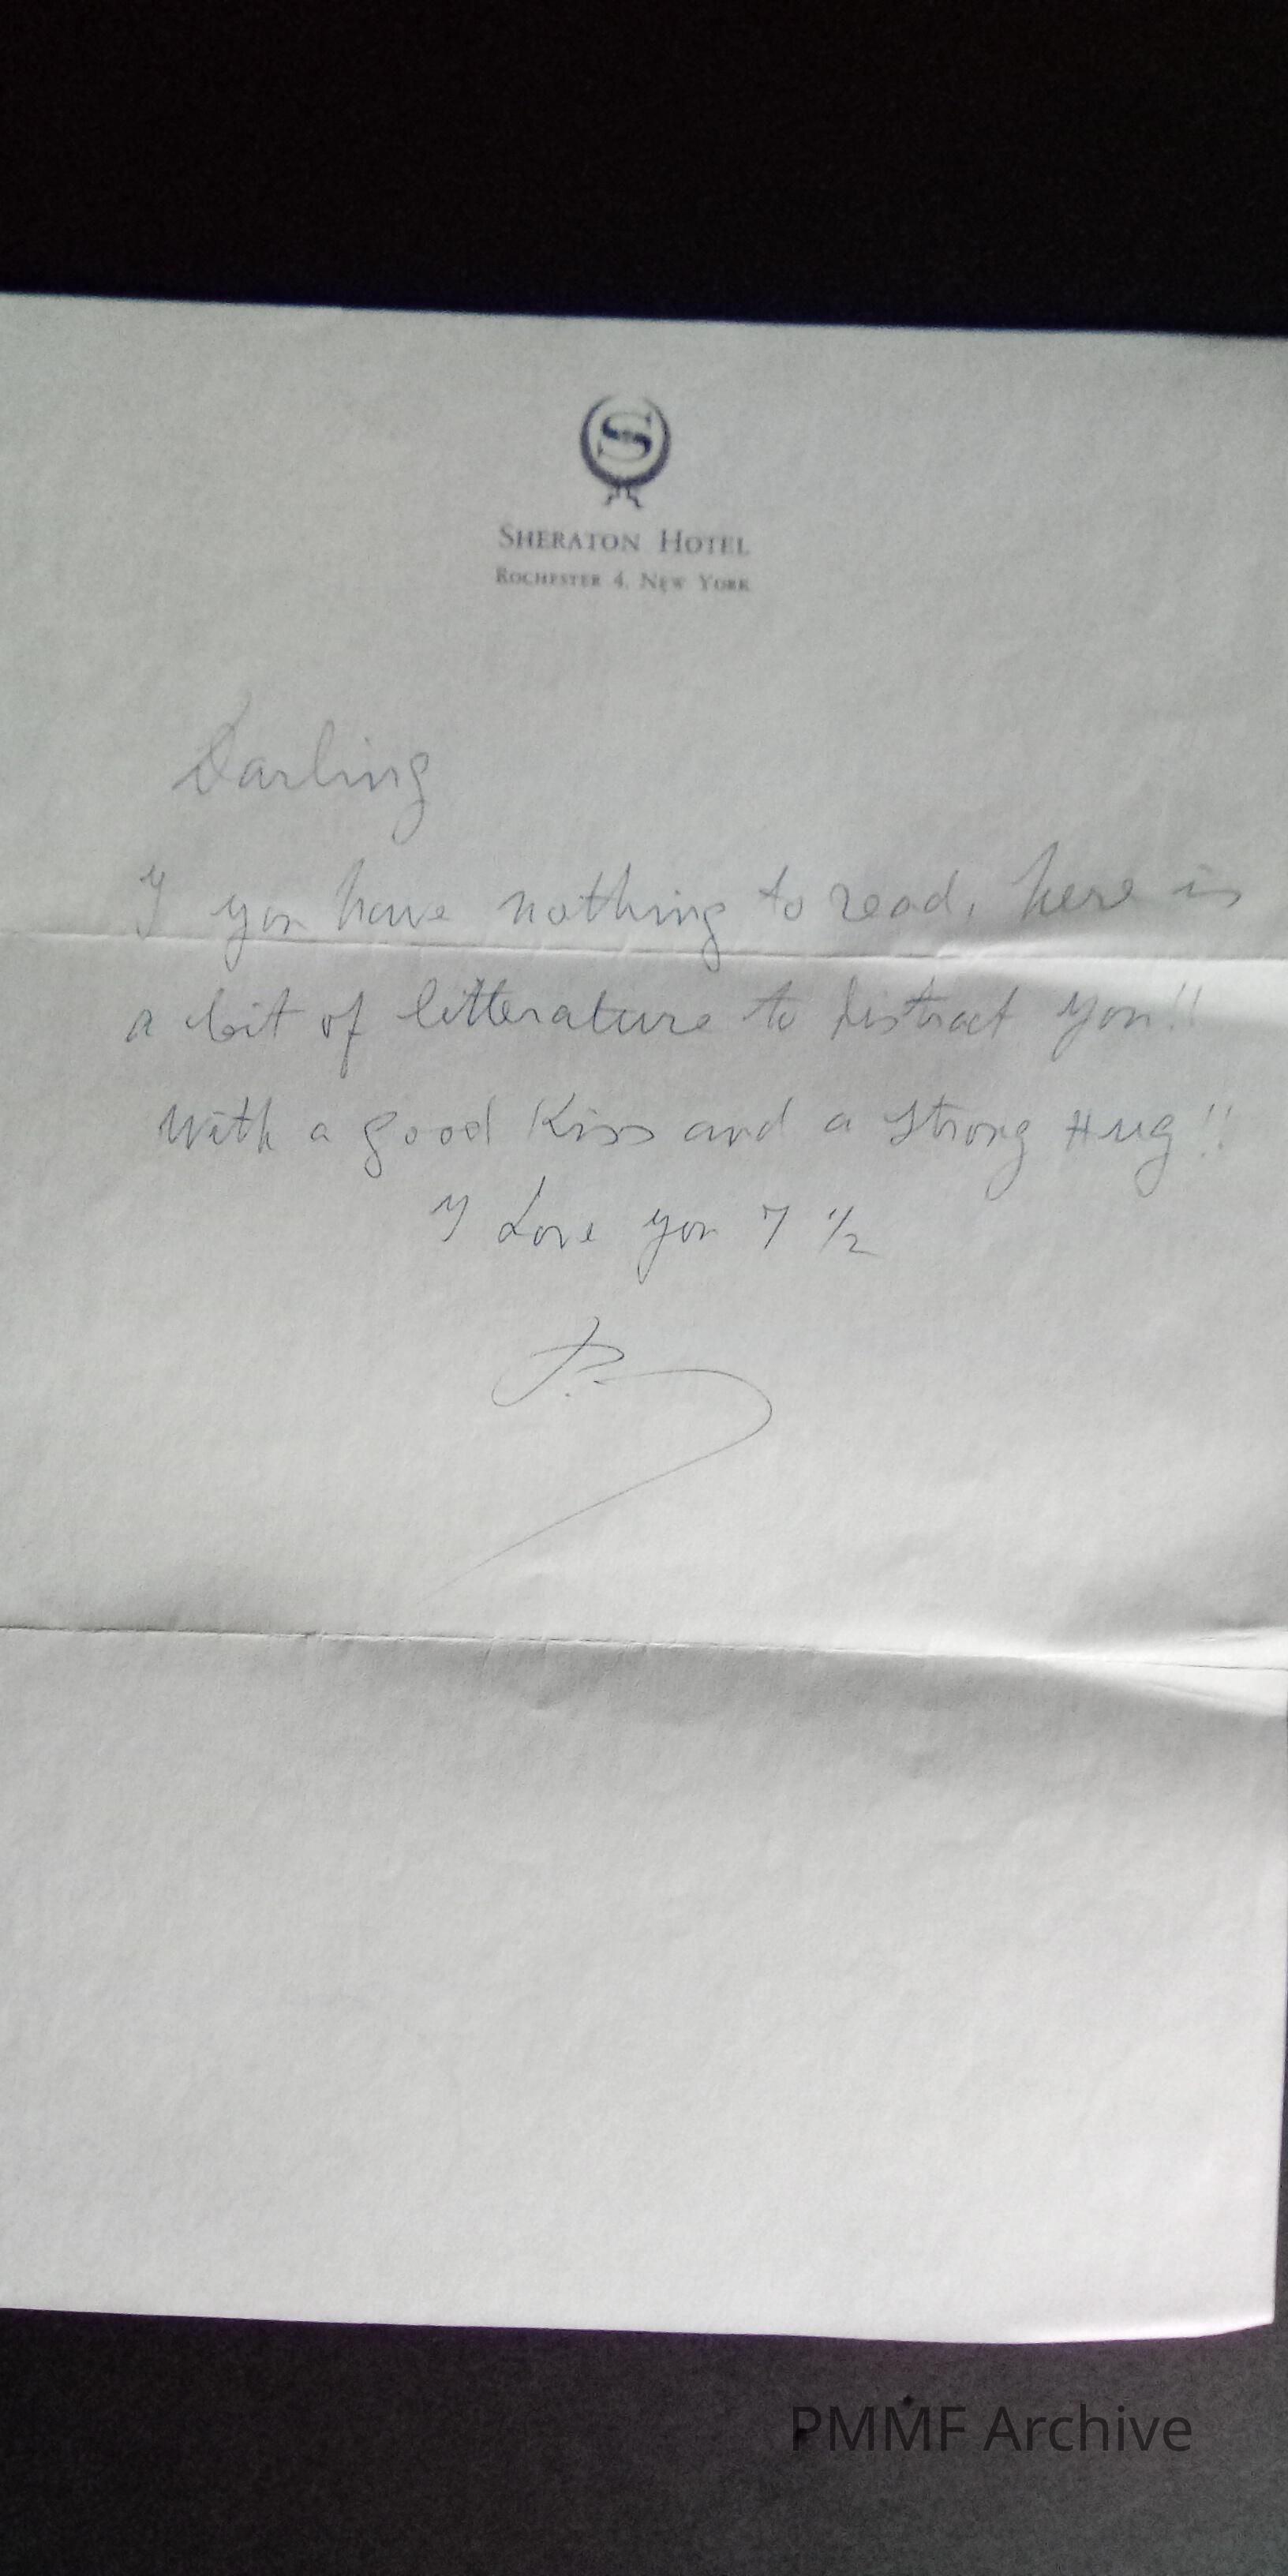 SHERATON HOTEL
ROCHESTER 4, NEW YORK
Darling
I you have nothing to read, here is
a bit of litterature to distract you!!
With a good Kiss and a strong Hug!!
I Love you 7 1/2
P.
PMMF Archive